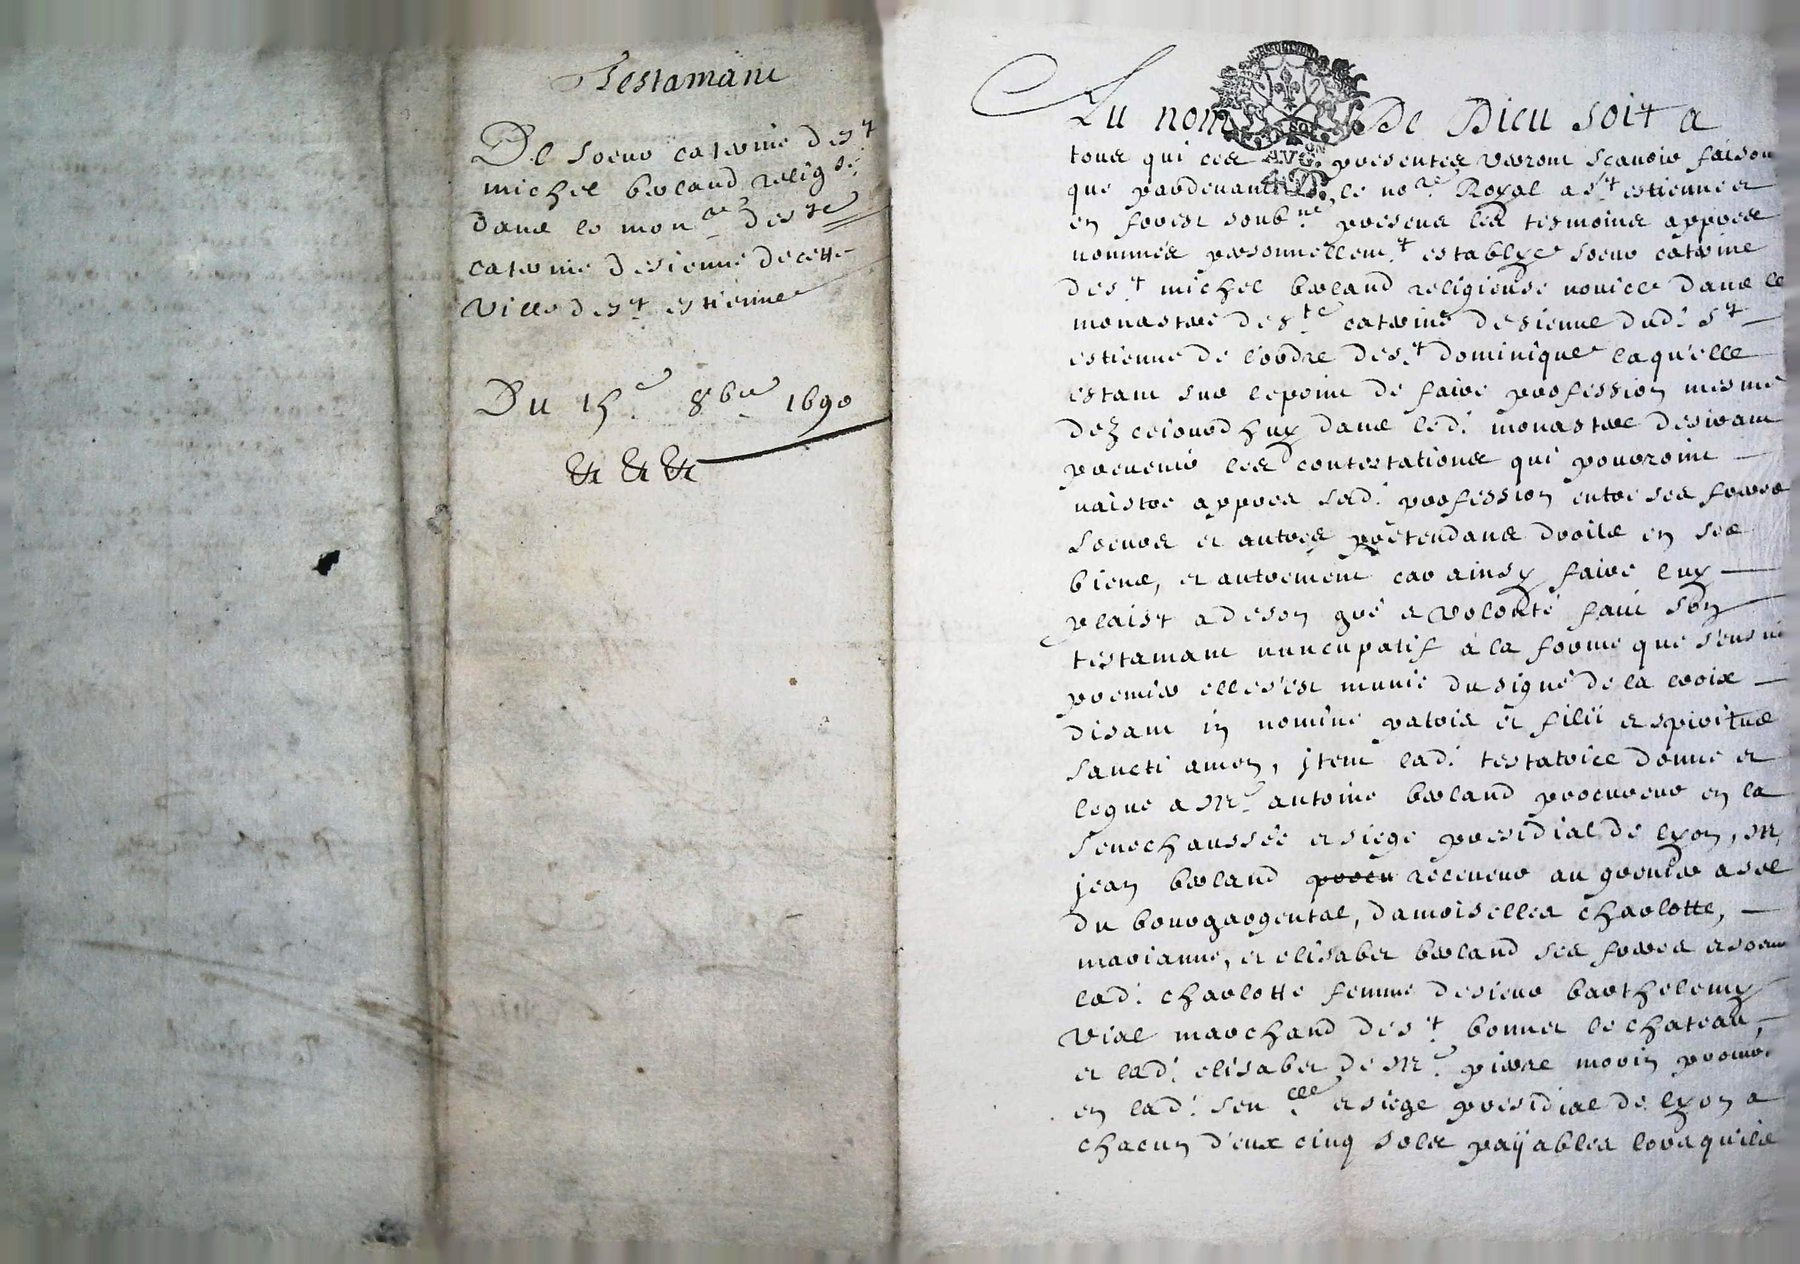 Testamant
De soeur caterine de st
michel berland relig.se
dans le mon.re de ste
caterine desienne decette
Ville de st estienne
Du 15e 8bre 1690
&c &c &c
Au nom De Dieu soit a
tous qui ces presentes verront scavoir faison
que pardevant le no.re Royal a st estienne et
en forest soub.ne presens les tesmoins appres
nommés personnellem.t establye soeur caterine
de s.t michel berland religieuse novice dans le
monastere de s.te caterine desienne dud. st
estienne de l'ordre de s.t dominique laquelle
estant sur lepoint de faire profession mesme
dez cejourdhuy dans led. monastere desirant
prevenir les contestations qui pourroint
naistre appres sad. profession entre ses freres
soeurs et autres prétendans droits en ses
biens, et autrement car ainsy faire luy
plaist a deson gré et volonté fait son
testamant nuncupatif à la forme que s'ensuit
premier elle s'est munie du signe de la croix
disant in nomine patris et filii et spiritus
sancti amen, jtem lad. testatrice donne et
legue a Mr. antoine berland procureur en la
senechaussée et siege presidial de lyon, Mr
jean berland procu receveur au grenier a sel
du bourgargental, damoiselles charlotte,
marianne, et elisabet berland ses freres et soeurs
lad. charlotte femme desieur barthelemy
vial marchand de st bonnet le chateau,
et lad. elisabet de Mr. pierre morin procur.
en lad. sen.cee et siege presidial de lyon a
chacun d'eux cinq sols payables lors qu'ils